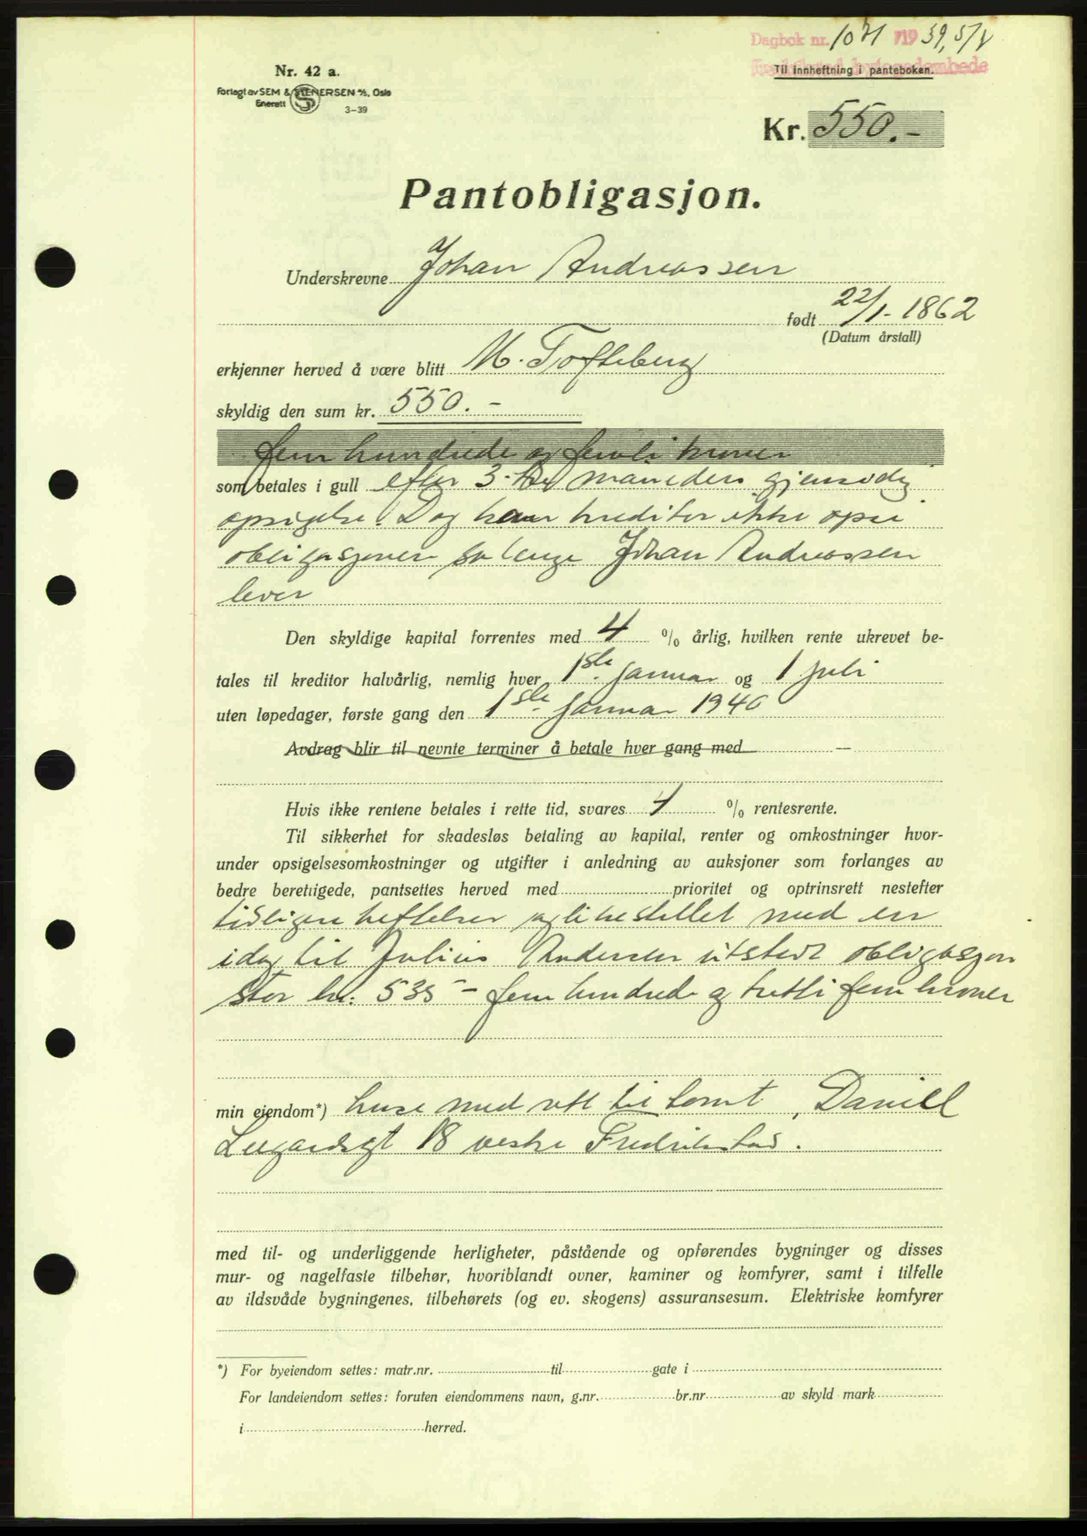 Dagbok nr. 1071 1939, 5/8
Til innheftning i panteboken.
Nr. 42 a.
Forlagt av SEM & STENERSEN A/S, Oslo
Enerett
3-39
Kr. 550.-
Pantobligasjon.
Underskrevne Johan Andreassen
født 22/1-1862
(Datum årstall)
erkjenner herved å være blitt M. Tofteberg
skyldig den sum kr. 550.-
fem hundrede og femti kroner
som betales i gull efter 3-tre måneders gjensidig
opsigelse. Dog kan kreditor ikke opsi
obligasjonen så lenge Johan Andreassen
lever
Den skyldige kapital forrentes med 4 % årlig, hvilken rente ukrevet be-
tales til kreditor halvårlig, nemlig hver 1ste januar og 1 juli
uten løpedager, første gang den 1ste januar 1940
Avdrag blir til nevnte terminer å betale hver gang med —
Hvis ikke rentene betales i rette tid, svares 4 % rentesrente.
Til sikkerhet for skadesløs betaling av kapital, renter og omkostninger hvor-
under opsigelsesomkostninger og utgifter i anledning av auksjoner som forlanges av
bedre berettigede, pantsettes herved med prioritet og optrinsrett nestefter
tidligere heftelser og likestillet med en
idag til Julius Andersen utstedt obligasjon
stor kr. 535- fem hundrede og tretti fem kroner
min eiendom*) huse med rett til tomt, Daniel
Leegaardsgt 18 vestre Fredrikstad.
med til- og underliggende herligheter, påstående og opførendes bygninger og disses
mur- og nagelfaste tilbehør, hvoriblandt ovner, kaminer og komfyrer, samt i tilfelle
av ildsvåde bygningenes, tilbehørets (og ev. skogens) assuransesum. Elektriske komfyrer
*) For byeiendom settes: matr.nr. til gate i
For landeiendom settes: foruten eiendommens navn, g.nr. br.nr av skyld mark
i herred.